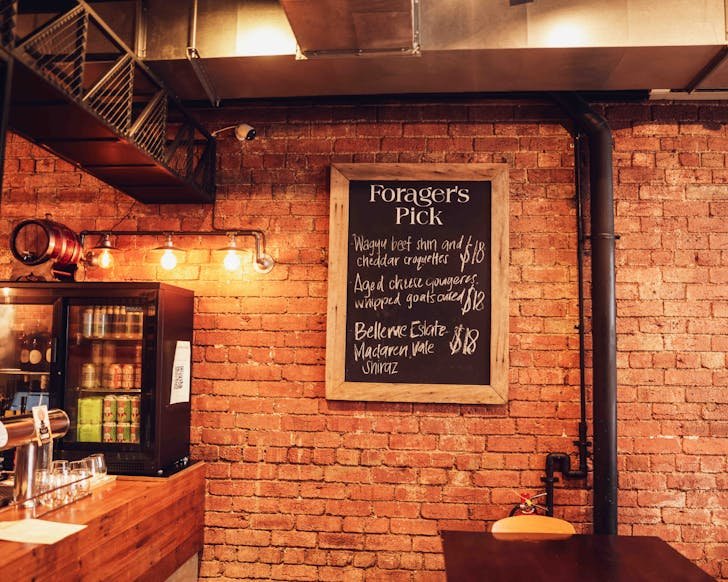 Forager's
Pick
Wagyu beef shin and
cheddar croquettes $18
Aged cheese gougeres,
whipped goats curd $12
Bellevue Estate
Maclaren Vale $18
Shiraz